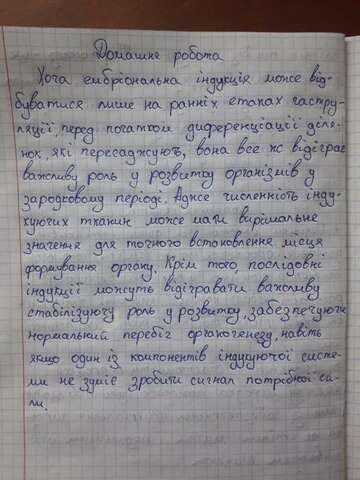 Домашня робота
Хоча ембріональна індукція може від-
буватися лише на ранніх етапах гастру-
ляції, перед початком диференціації діля-
нок, які пересаджують, вона все ж відіграє
важливу роль у розвитку організмів у
зародковому періоді. Адже численність інду-
куючих тканин може мати вирішальне
значення для точного встановлення місця
формування органу. Крім того, послідовні
індукції можуть відігравати важливу
стабілізуючу роль у розвитку, забезпечуючи
нормальний перебіг органогенезу, навіть
якщо один із компонентів індукуючої систе-
ми не зуміє зробити сигнал потрібної си-
ли.